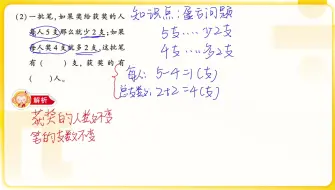 (2)一批笔,如果奖给获奖的人
每人5支那么就少2支;如果
每人奖4支就多2支,这批笔
有(  )支,获奖的有
(  )人。
知识点:盈亏问题
5支……少2支
4支……多2支
每人:5-4=1(支)
总支数:2+2=4(支)
解析
获奖的人数不变
笔的支数不变